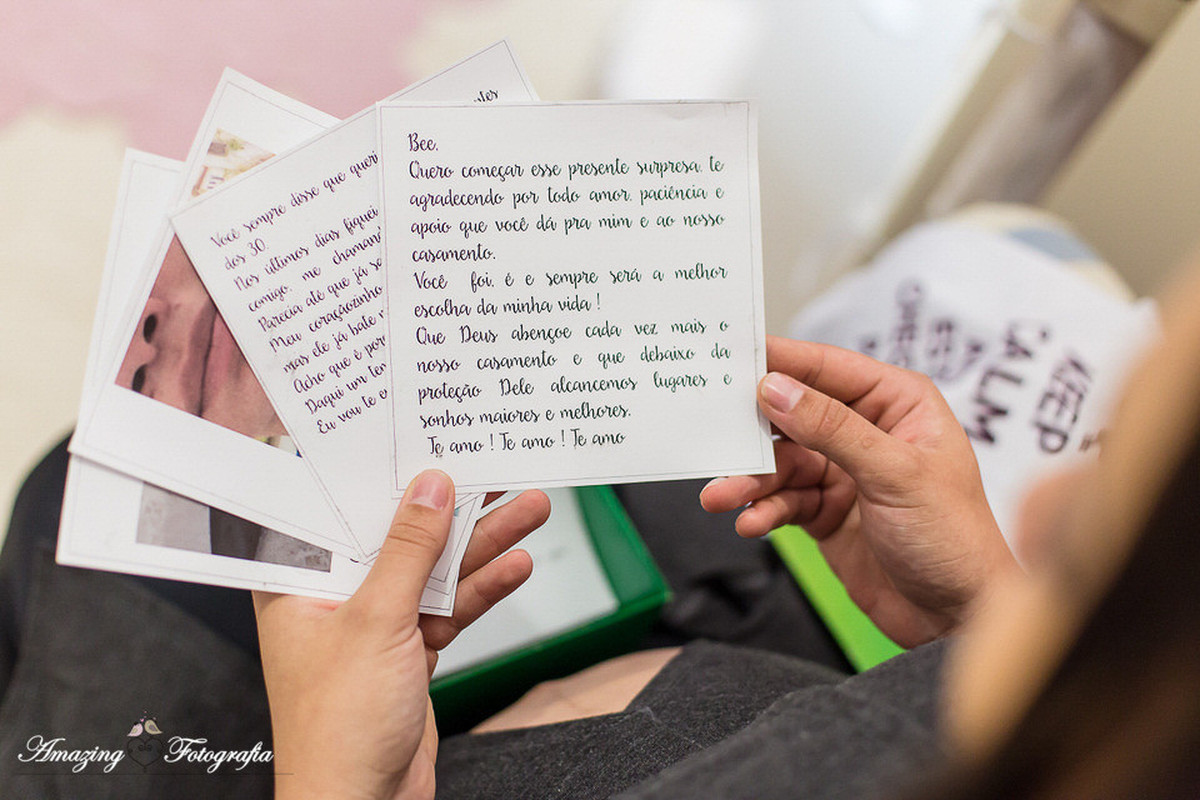 Bee,
Quero começar esse presente surpresa, te
agradecendo por todo amor, paciência e
apoio que você dá pra mim e ao nosso
casamento.
Você foi, é e sempre será a melhor
escolha da minha vida !
Que Deus abençoe cada vez mais o
nosso casamento e que debaixo da
proteção Dele alcancemos lugares e
sonhos maiores e melhores.
Te amo ! Te amo ! Te amo
Você sempre disse que
dos 30,
Nos últimos dias fiquei
comigo, me
Parecia até que já
Meu coraçãozinho
mas ele já bate
Acho que é
Daqui um
Eu vou te
KEEP
CALM
Amazing Fotografia